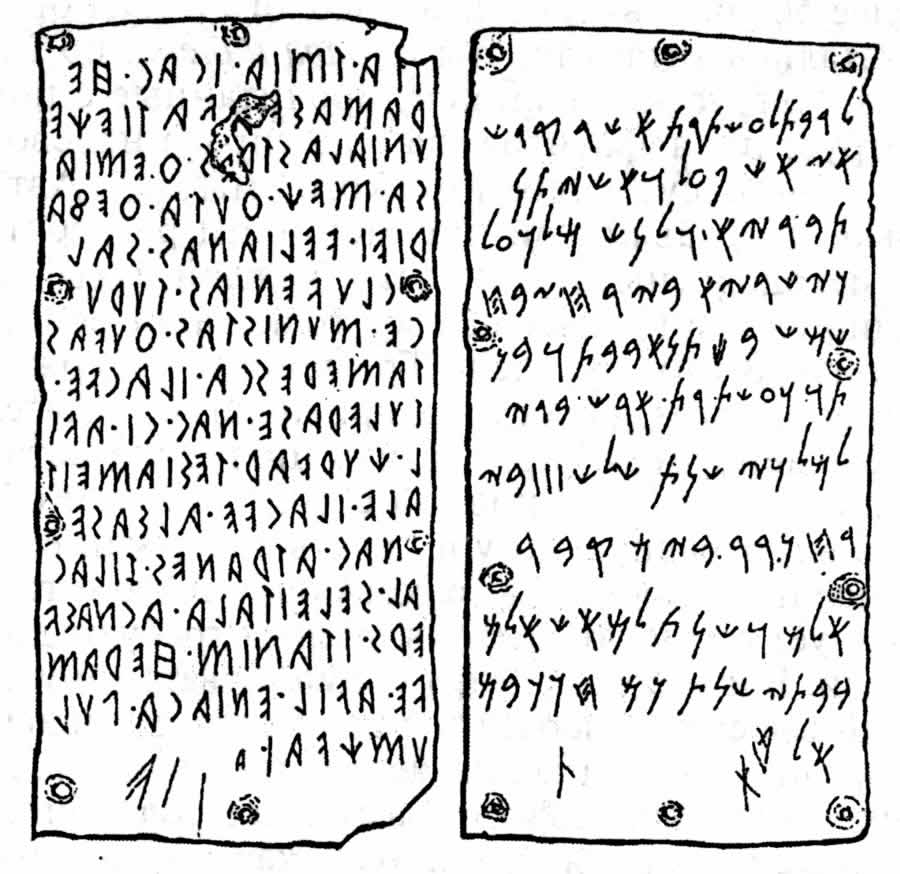 𐌉𐌕𐌀·𐌕𐌌𐌉𐌀·𐌉𐌂𐌀𐌂·𐌇𐌄
𐌓𐌀𐌌𐌀𐌔𐌅𐌀 𐌅𐌀𐌕𐌉𐌄𐌙𐌄
𐌖𐌍𐌉𐌀𐌋𐌀𐌔𐌕𐌓𐌄𐌔·𐌈𐌄𐌌𐌉𐌀
𐌔𐌀·𐌌𐌄𐌙·𐌈𐌖𐌕𐌀·𐌈𐌄𐌚𐌀
𐌓𐌉𐌄𐌉·𐌅𐌄𐌋𐌉𐌀𐌍𐌀𐌔·𐌔𐌀𐌋
𐌂𐌋𐌖𐌅𐌄𐌍𐌉𐌀𐌔·𐌕𐌖𐌓𐌖
𐌂𐌄·𐌌𐌖𐌍𐌉𐌔𐌕𐌀𐌔·𐌈𐌖𐌅𐌀𐌔
𐌕𐌀𐌌𐌄𐌓𐌄𐌔𐌂𐌀·𐌉𐌋𐌀𐌂𐌅𐌄·
𐌕𐌖𐌋𐌄𐌓𐌀𐌔𐌄·𐌍𐌀𐌂·𐌂𐌉·𐌀𐌅𐌉
𐌋·𐌙𐌖𐌓𐌅𐌀𐌓·𐌕𐌄𐌔𐌉𐌀𐌌𐌄𐌉𐌕
𐌀𐌋𐌄·𐌉𐌋𐌀𐌂𐌅𐌄·𐌀𐌋𐌔𐌀𐌔𐌄
𐌍𐌀𐌂·𐌀𐌕𐌓𐌀𐌍𐌄𐌔·𐌆𐌉𐌋𐌀𐌂
𐌀𐌋·𐌔𐌄𐌋𐌄𐌉𐌕𐌀𐌋𐌀·𐌀𐌂𐌍𐌀𐌔𐌅
𐌄𐌓𐌔·𐌉𐌕𐌀𐌍𐌉𐌌·𐌇𐌄𐌓𐌀𐌌
𐌅𐌄·𐌀𐌅𐌉𐌋·𐌄𐌍𐌉𐌀𐌂𐌀·𐌐𐌖𐌋
𐌖𐌌𐌙𐌅𐌀·
𐤋𐤓𐤁𐤕 𐤋𐤏𐤔𐤕𐤓𐤕 𐤀𐤔𐤓 𐤒𐤃𐤔
𐤀𐤆 𐤀𐤔 𐤐𐤏𐤋 𐤅𐤀𐤔 𐤉𐤕𐤍
𐤕𐤁𐤓𐤉𐤀 𐤅𐤋𐤍𐤔 𐤌𐤋𐤊 𐤏𐤋
𐤊𐤉𐤔𐤓𐤉𐤀 𐤁𐤉𐤓𐤇 𐤆𐤁𐤇
𐤔𐤌𐤔 𐤁𐤌𐤕𐤍𐤀 𐤁𐤁𐤕 𐤅𐤁𐤍
𐤕𐤅 𐤊𐤏𐤔𐤕𐤓𐤕 𐤀𐤓𐤔 𐤁𐤃𐤉
𐤋𐤌𐤋𐤊𐤉 𐤔𐤍𐤕 𐤔𐤋𐤔 𐤖𐤖𐤖 𐤁𐤉
𐤓𐤇 𐤊𐤓𐤓 𐤁𐤉𐤌 𐤒𐤁𐤓
𐤀𐤋𐤌 𐤅𐤔𐤍𐤕 𐤋𐤌𐤀𐤔 𐤀𐤋𐤌
𐤁𐤁𐤕𐤉 𐤔𐤍𐤕 𐤊𐤌 𐤄𐤊𐤊𐤁𐤌
𐤀𐤋